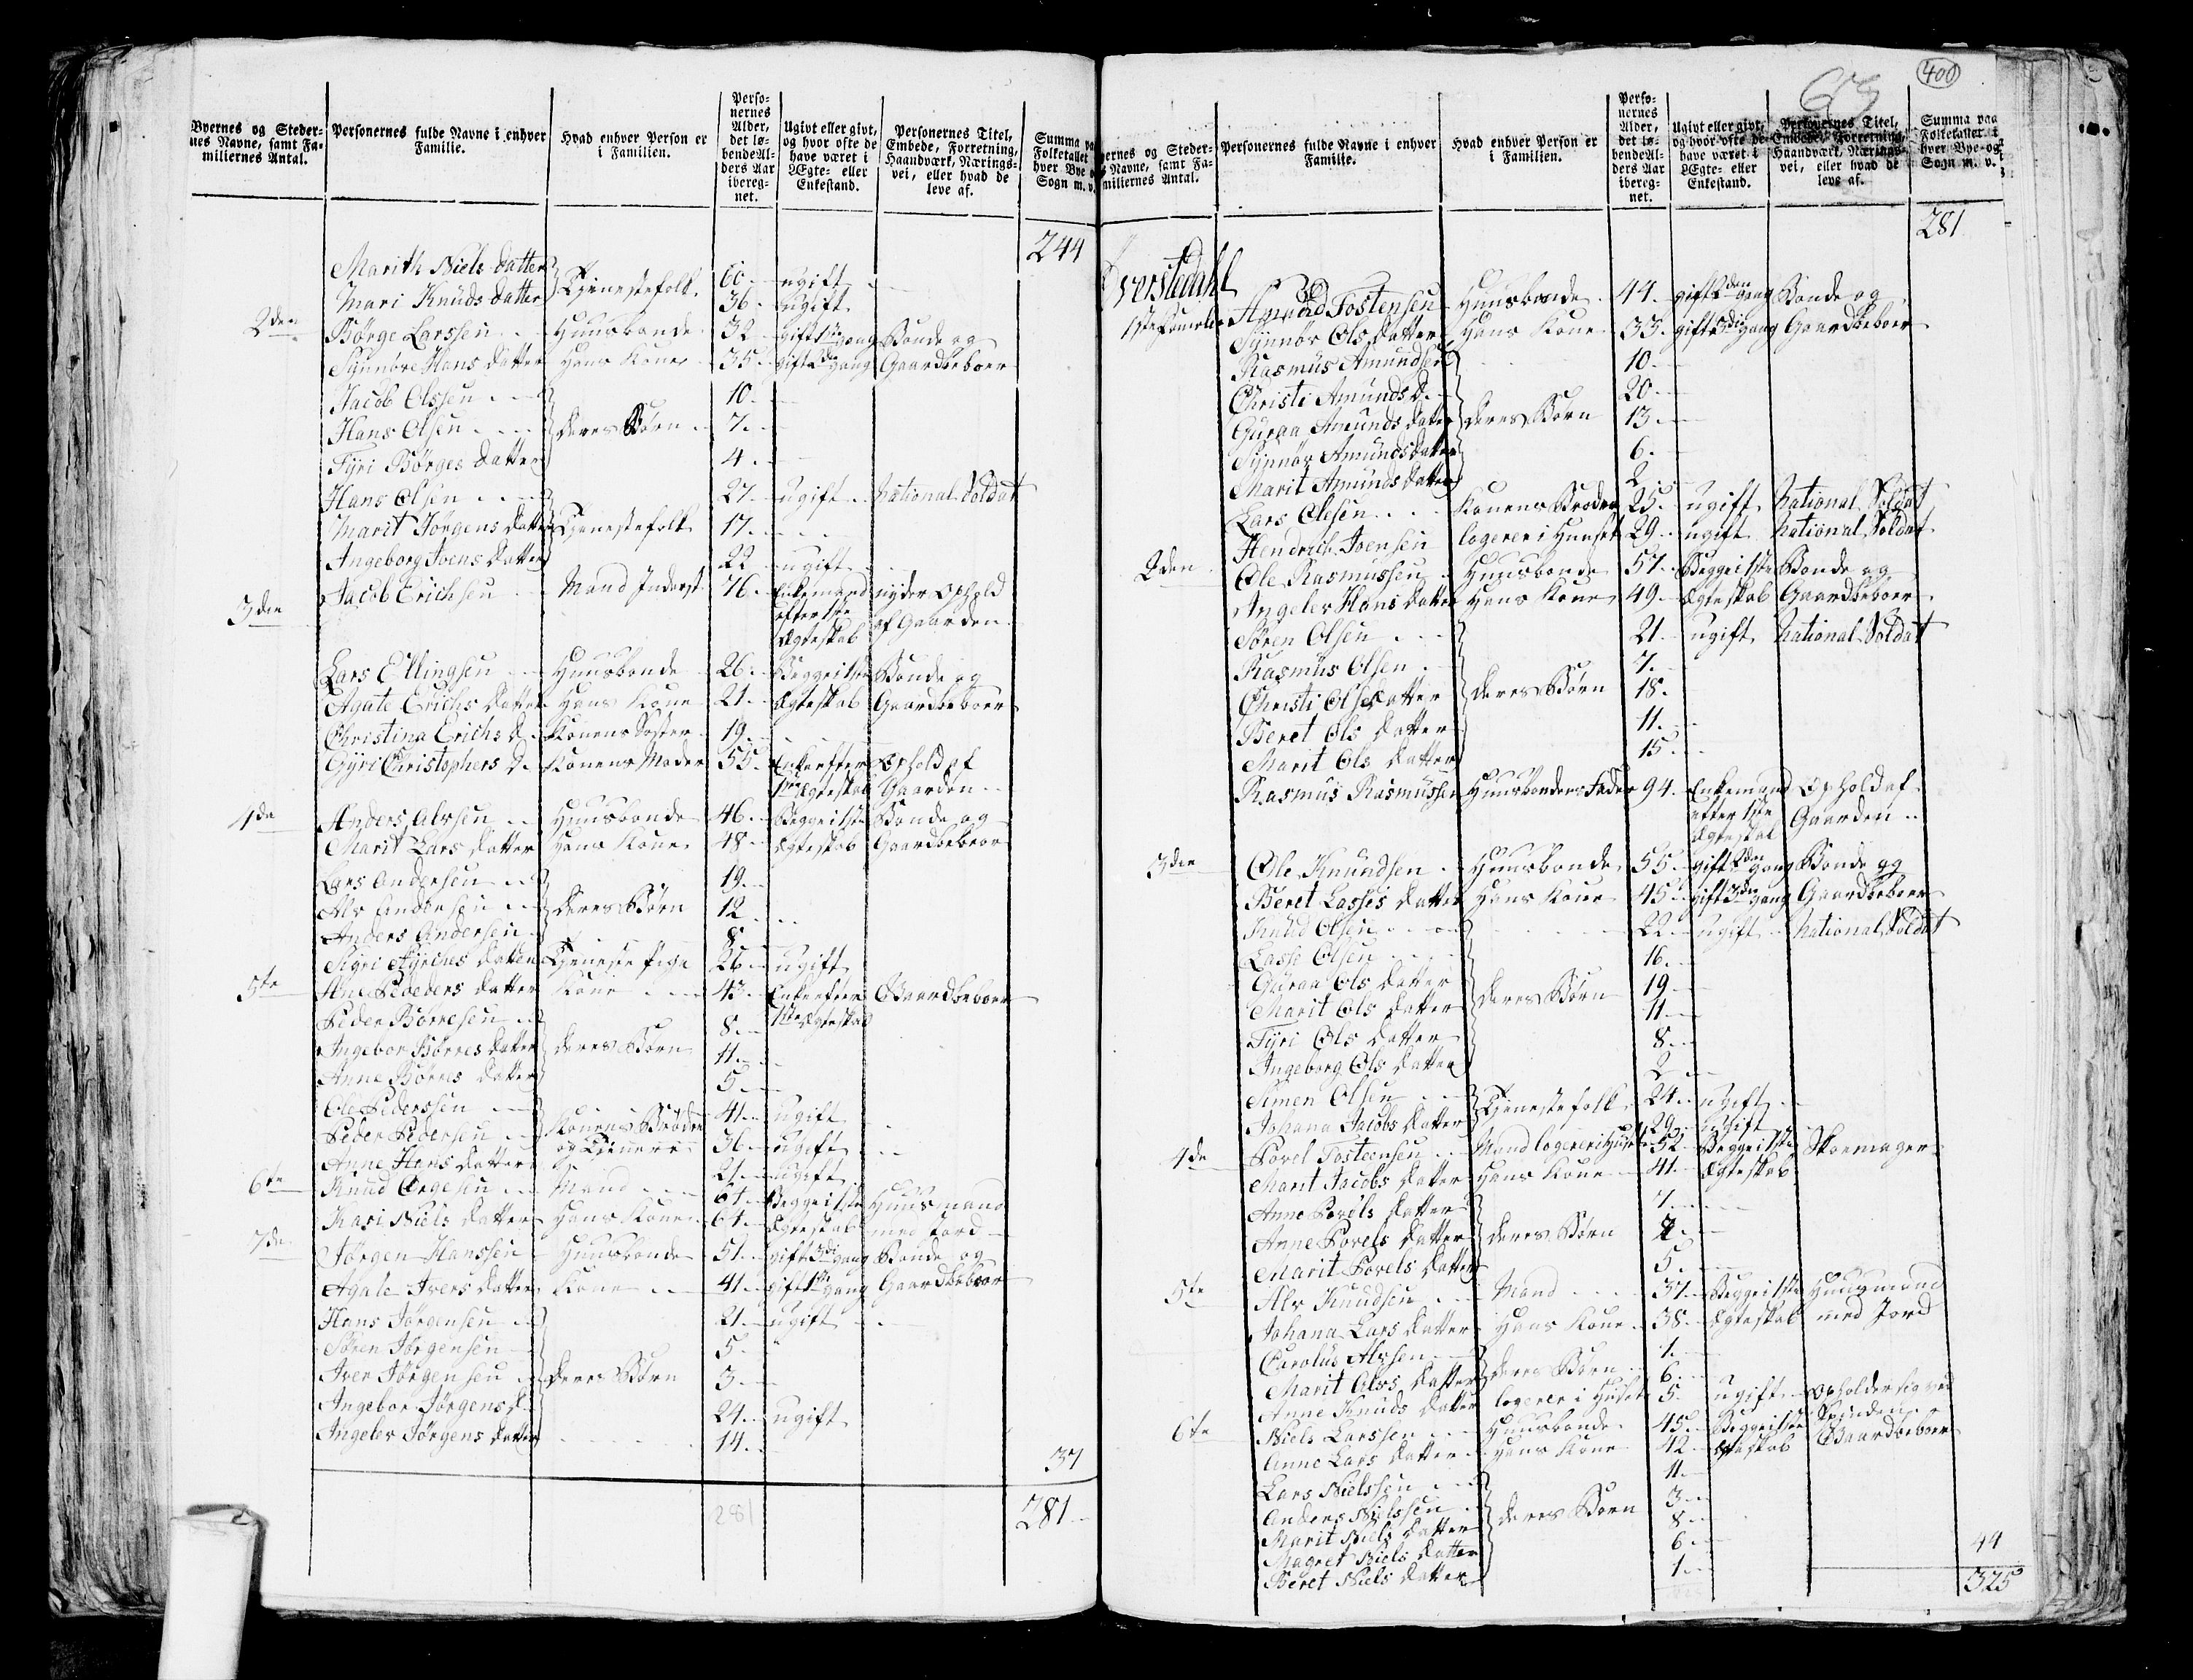 Byernes og Steder-
nes Navne, samt Fa-
miliernes Antal.
Personernes fulde Navne i enhver
Familie.
Hvad enhver Person er
i Familien.
Perso-
nernes
Alder,
det lø-
bende Al-
ders Aar
ibereg-
net.
Ugivt eller givt,
og hvor ofte de
have været i
Ægte- eller
Enkestand.
Personernes Titel,
Embede, Forretning,
Haandværk, Nærings-
vei, eller hvad de
leve af.
Summa
Folketallet
hver Bye
Sogn m. v.
244
Marith Niels datter Tjenestefolk 60 ugift
Mari Knuds datter 36 ugift
2den Børge Larssen Huusbonde 32 gift 1ste gang Bonde og
Synnøre Hans datter Hans Kone 35 gift 2de gang Gaardbeboer
Jacob Olssen 10
Hans Olsen deres Børn 7
Tyri Børges datter 4
Hans Olsen 27 ugift national Soldat
Marit Jørgens datter Tjenestefolk 17
Angeborg Ivens datter 22 ugift
3die Jacob Erichsen Mand Inderst 76 Enkemand nyder Ophold
efter 1ste af Gaarden
Ægteskab
Lars Ellingsen Huusbonde 26 Begge i 1ste Bonde og
Agate Erichs datter Hans Kone 21 Ægteskab Gaardbeboer
Christina Erichs d. Konens Søster 19
Gyri Christophers d. Konens Moder 55 Enke efter Ophold af
1ste Ægteskab Gaarden
4de Anders Alvsen Huusbonde 46 Begge i 1ste Bonde og
Marit Lars datter Hans Kone 48 Ægteskab Gaardbeboer
Lars Andersen 19
Alv Andersen deres Børn 12
Anders Andersen 8
Sigri datter Tjeneste Pige 26 ugift
5te Ane Peders datter Kone 43 Enke efter Gaardbeboer
Peder Børresen 8 1ste Ægteskab
Ingebor Børres datter deres Børn 11
Anne Børres datter 5
Ole Pederssen Konens Brødre 41 ugift
Peder Pedersen og Tjenere 36 ugift
Anne Hans datter 21 ugift
6te Knud Mand 61 Begge i 1ste Huusmand
Kari Niels datter Hans Kone 61 Ægteskab med Jord
7de Jørgen Hanssen Huusbonde 51 gift 3di gang Bonde og
Agate Ivers datter Kone 41 gift 1ste gang Gaardbeboer
Hans Jørgensen 21 ugift
Søren Jørgensen 5
Iver Jørgensen deres Børn 3
Ingebor Jørgens d. 24 ugift
Angelev Jørgens datter 14
37
281
281
400
63
ernes og Steder-
s Navne, samt Fa-
miliernes Antal.
Personernes fulde Navne i enhver
Familie.
Hvad enhver Person er
i Familien.
Perso-
nernes
Alder,
det lø-
bende Al-
ders Aar
ibereg-
net.
Ugivt eller givt,
og hvor ofte de
have været i
Ægte- eller
Enkestand.
Personernes Titel,
Embede, Forretning,
Haandværk, Nærings-
vei, eller hvad de
leve af.
Summa paa
Folketallet i
hver Bye- og
Sogn m. v.
281
1ste Familie Amund Tostensen Huusbonde 44 gift 2den gang Bonde og
Synnør Ols datter Hans Kone 33 gift 3di gang Gaardbeboer
Rasmus Amundsen 10
Christi Amunds D. 20
Guraa Amunds datter deres Børn 13
Synnør Amunds datter 6
Marit Amunds datter 2
Lars Olesen Konens Broder 25 ugift national Soldat
Hendrich Ivensen logerer i Huuset 29 ugift national Soldat
2den Ole Rasmussen Huusbonde 57 Begge i 1ste Bonde og
Angelev Hans datter Hans Kone 49 Ægteskab Gaardbeboer
Søren Olsen 21 ugift national Soldat
Rasmus Olsen 7
Christi Ols datter deres Børn 18
Beret Ols datter 11
Marit Ols datter 15
Rasmus Rasmussen Huusbondens Fader 94 Enkemand Ophold af
efter 1ste Gaarden
Ægteskab
3die Ole Knundsen Huusbonde 55 gift 2den gang Bonde og
Beret Lasses datter Hans Kone 45 gift 3de gang Gaardbeboer
Knud Olsen 22 ugift national Soldat
Lasse Olsen 16
Guraa Ols datter 19
Marit Ols datter deres Børn 11
Tyri Ols datter 8
Ingeborg Ols datter 2
Simen Olsen Tjenestefolk 24 ugift
Johana Jacobs datter 29 ugift
4de Povel Tosteensen Mand logerer i Huset 52 Begge i 1ste Skoemager
Marit Jacobs datter Hans Kone 41 Ægteskab
Anne Povels datter 7
Anne Povels datter deres Børn 2
Marit Povels datter 5
5te Alv Knudsen Mand 37 Begge i 1ste Huusmand
Johana Lars datter Hans Kone 38 Ægteskab med Jord
Carolus Alvsen 1
Marit Alvs datter deres Børn 6
Anne Knuds datter logerer i Huset 5 ugift opholder sig ved
Spinden
6te Niels Larssen Huusbonde 45 Begge i 1ste Gaardbeboer
Anne Lars datter Hans Kone 42 Ægteskab
Lars Nielssen 11
Anders Nielssen 3
Marit Niels datter deres Børn 8
Magret Niels datter 6
Beret Niels datter 1
44
325